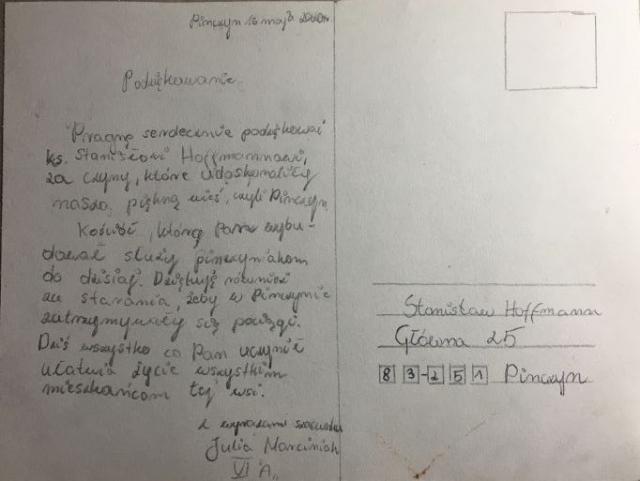 Pinczyn 16 maja 2020r.
Podziękowanie
Pragnę serdecznie podziękować
ks. Hoffmannowi,
za czyny, które udoskonaliły
naszą piękną wieś, czyli Pinczyn.
Kościół, który Pan wybu-
dował służy pinczyniakom
do dzisiaj. Dziękuję również
za starania, żeby w Pinczynie
zatrzymywały się pociągi.
Dziś wszystko co Pan uczynił
ułatwia życie wszystkim
mieszkańcom tej wsi.
z wyrazami szacunku
Julia Marciniak
VI A
Stanisław Hoffmann
Główna 25
83-251 Pinczyn